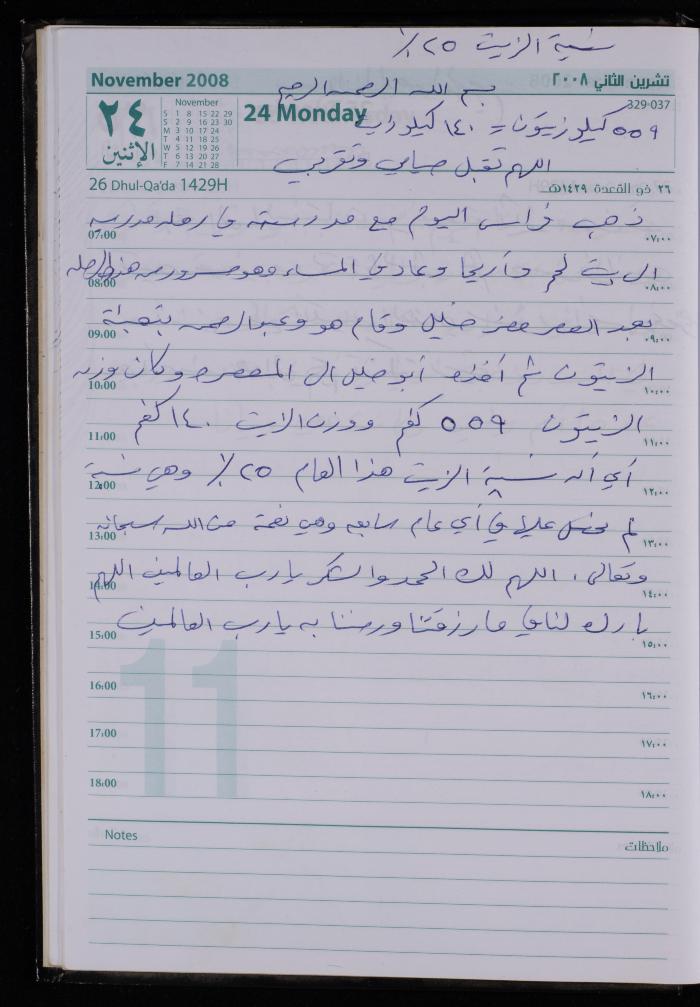 نسبة الزيت ٢٥ ٪
November 2008 تشرين الثاني ٢٠٠٨
بسم الله الرحمن الرحيم
٢٤ November 24 Monday 329-037
S 1 8 15 22 29
S 2 9 16 23 30
M 3 10 17 24
T 4 11 18 25
W 5 12 19 26
T 6 13 20 27
F 7 14 21 28
الإثنين
٥٥٩ كيلو زيتون = ١٤٠ كيلو زيت
اللهم تقبل صيامي وتقربي
26 Dhul-Qa'da 1429H ٢٦ ذو القعدة ١٤٢٩هـ
ذهب فراس اليوم مع مدرسته في رحلة مدرسية
07:00 ٠٧:٠٠
الى بيت لحم وأريحا وعاد في المساء وهو مسرور من هذه الرحلة
08:00 ٠٨:٠٠
بعد العصر حضر خليل وقام هو وعبد الرحمن بتعبئة
09:00 ٠٩:٠٠
الزيتون ثم أخذه أبو خليل الى المعصرة وكان وزن
10:00 ١٠:٠٠
الزيتون ٥٥٩ كغم ووزن الزيت ١٤٠ كغم
11:00 ١١:٠٠
أي أن نسبة الزيت هذا العام ٢٥ ٪ وهي نسبة
12:00 ١٢:٠٠
لم نحصل عليها في أي عام سابق وهي نعمة من الله سبحانه
13:00 ١٣:٠٠
وتعالى، اللهم لك الحمد والشكر يا رب العالمين اللهم
14:00 ١٤:٠٠
بارك لنا في ما رزقتنا ورضنا به يا رب العالمين
15:00 ١٥:٠٠
11
16:00 ١٦:٠٠
17:00 ١٧:٠٠
18:00 ١٨:٠٠
Notes ملاحظات